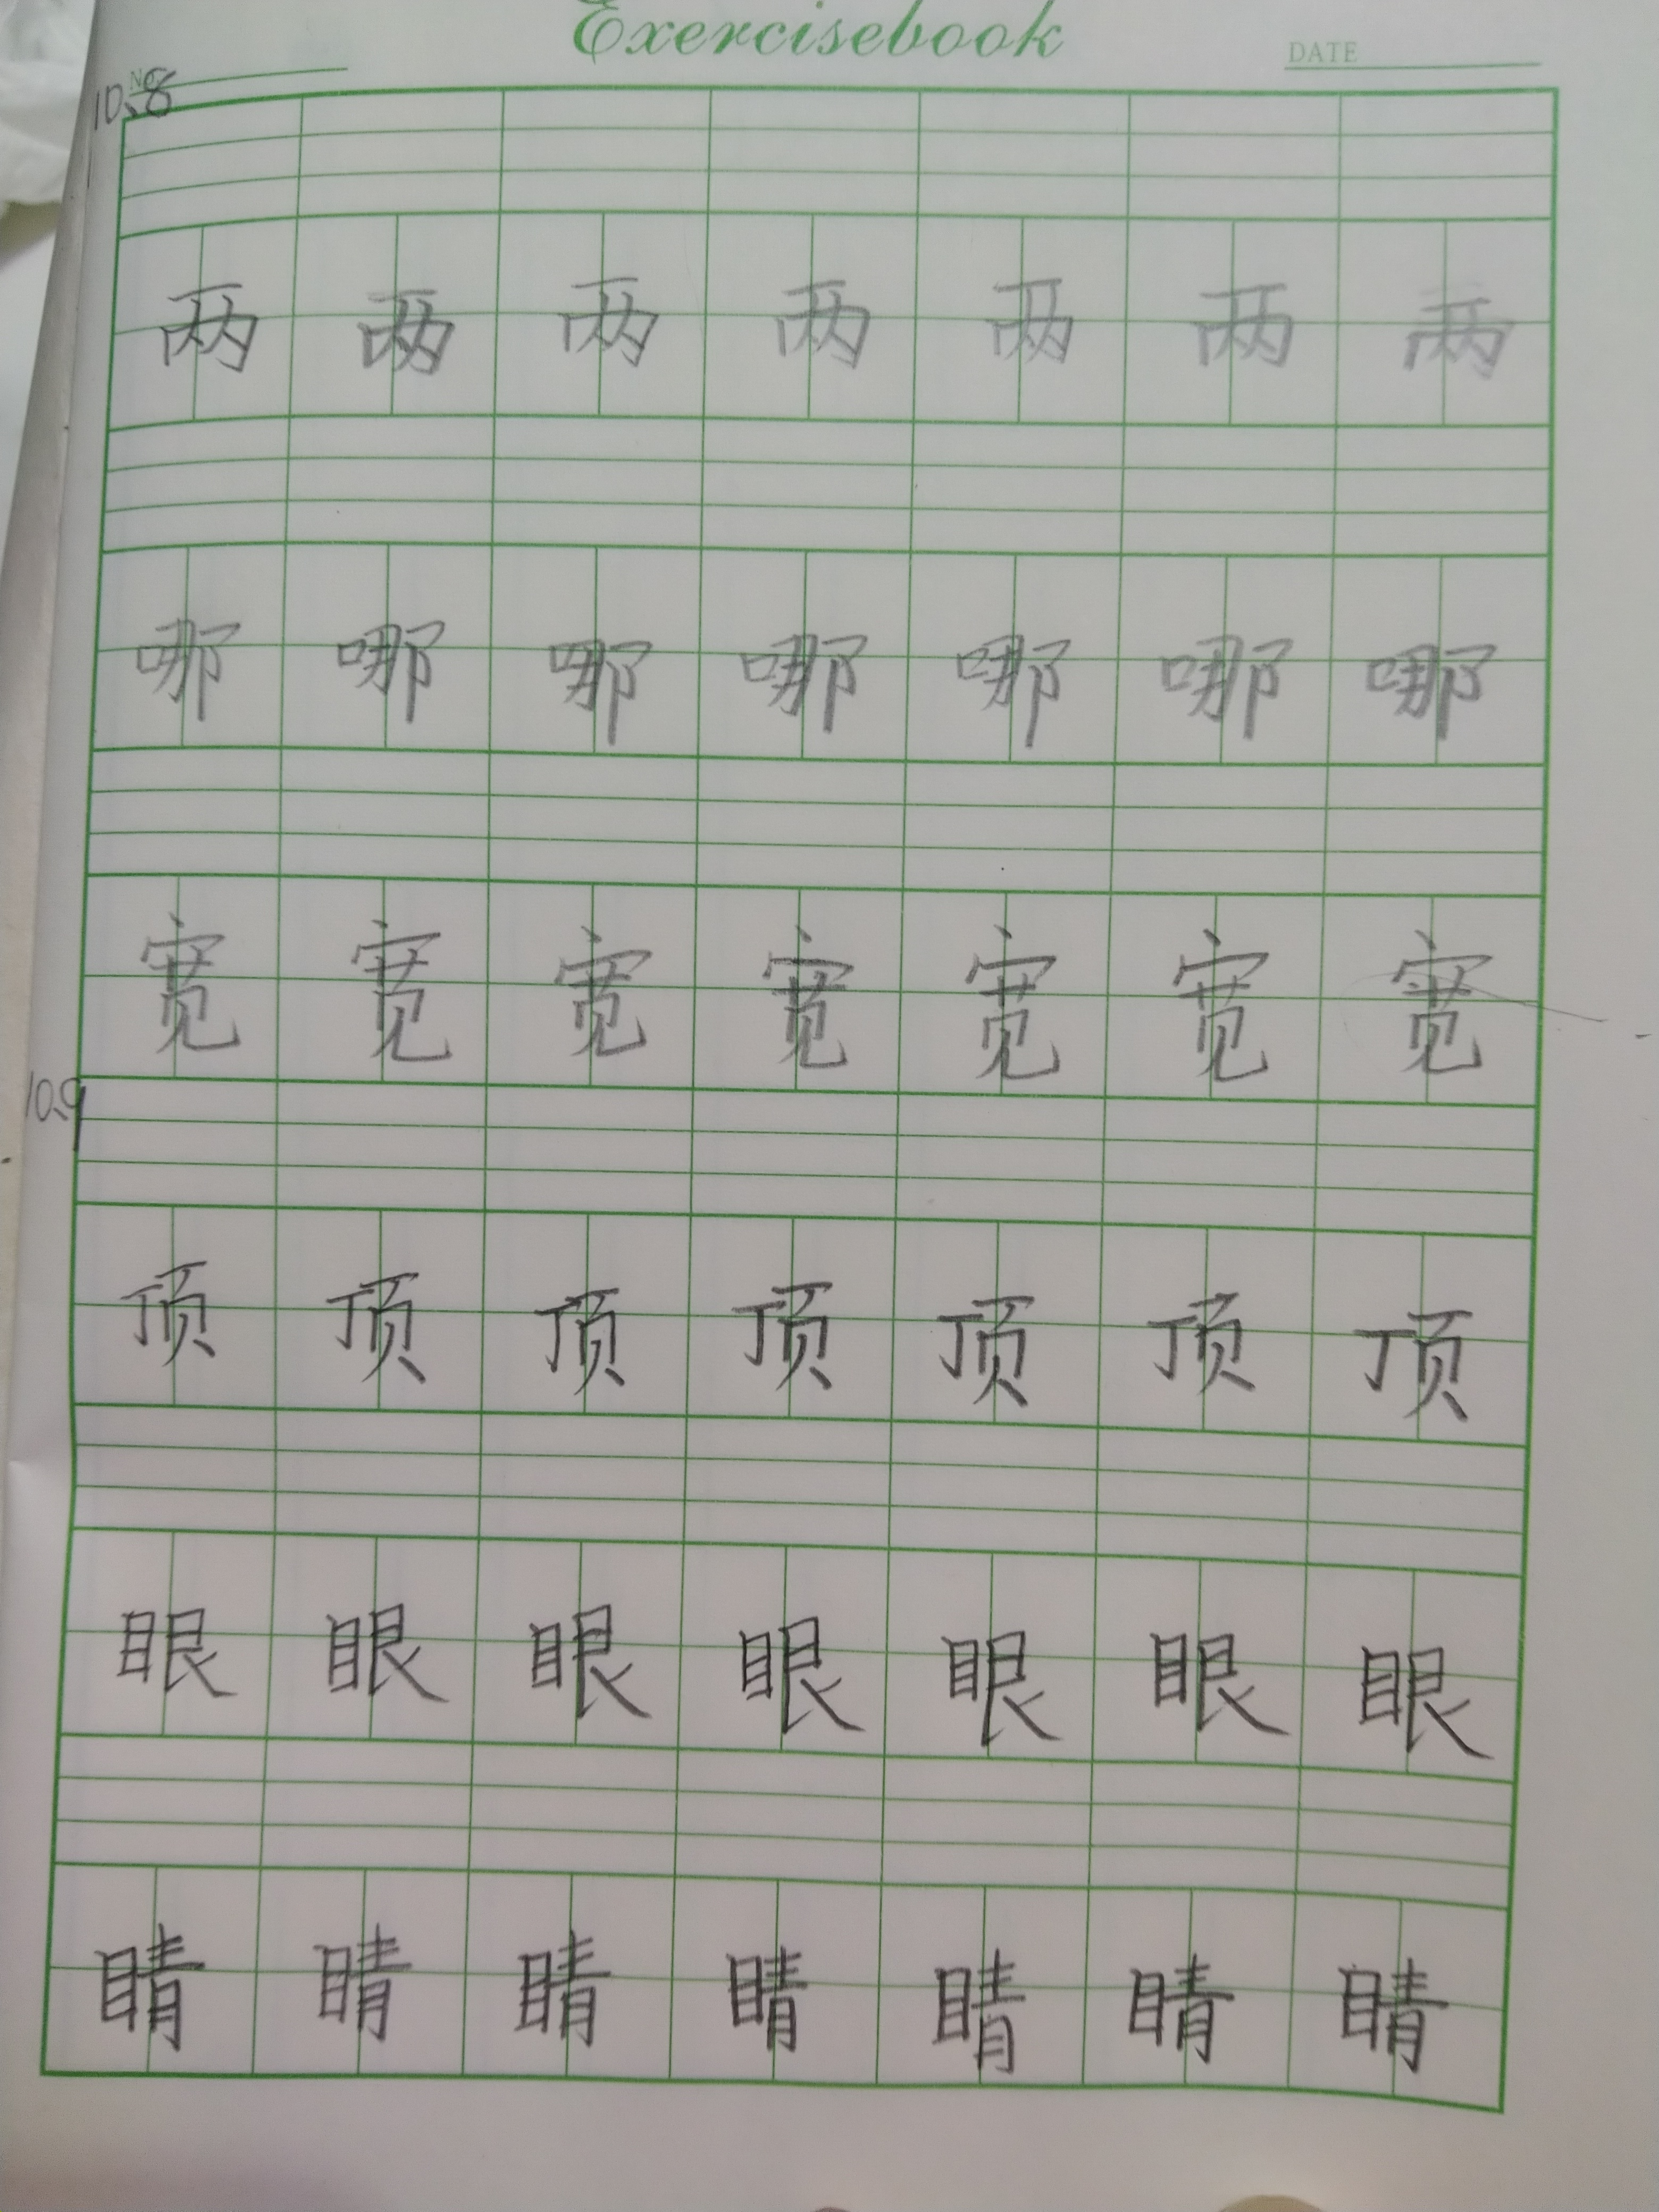 Exercisebook
No.
DATE
10.8
两 两 两 两 两 两 两
哪 哪 哪 哪 哪 哪 哪
宽 宽 宽 宽 宽 宽 宽
10.9
顶 顶 顶 顶 顶 顶 顶
眼 眼 眼 眼 眼 眼 眼
睛 睛 睛 睛 睛 睛 睛